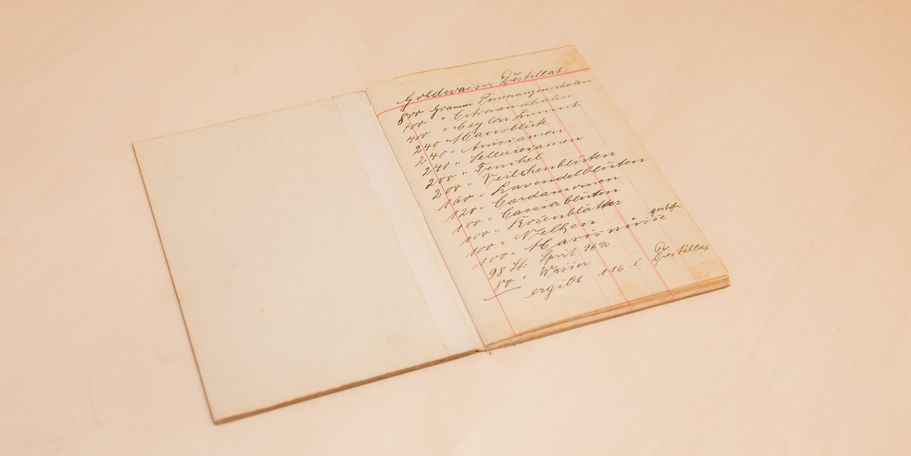 Goldwasser Destillat
800 Gramm Pomeranzenschalen
500 " Citronenschalen
400 " Ceylon Zimmt
240 " Macisblüte
240 " Anissamen
240 " Selleriesamen
200 " Fenchel
200 " Veilchenblüten
160 " Lavendelblüten
120 " Cardamomen
100 " Cassiablüten
100 " Rosenblätter
100 " Nelken
100 " Macisnüsse
98 Lt. Sprit 96%
80 " Wasser
ergibt 116 l Destillat